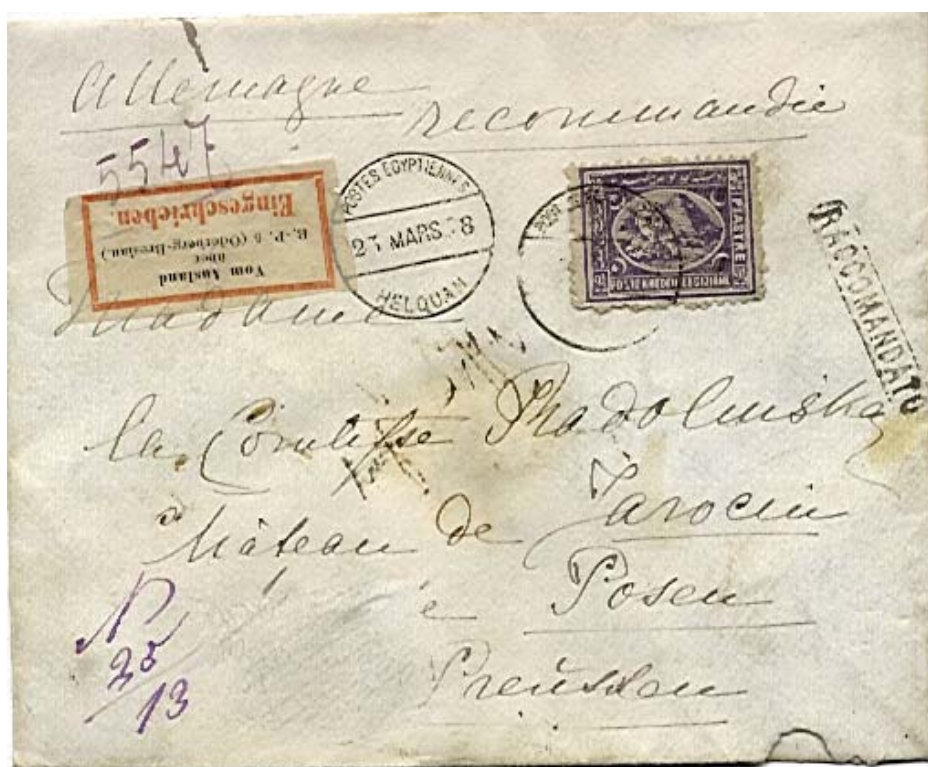 Allemagne
recommandée
5547
Eingeschrieben.
B.-P. 5 (Oderberg-Breslau.)
über
Vom Ausland
POSTES EGYPTIENNES
MARS 78
HELOUAN
PIASTRE
POSTE KHEDEUIE EGIZIANE
RACCOMANDATO
Madame
la Comtesse Radolinska
Château de Jarocin
Posen
Preussen
N
25/13